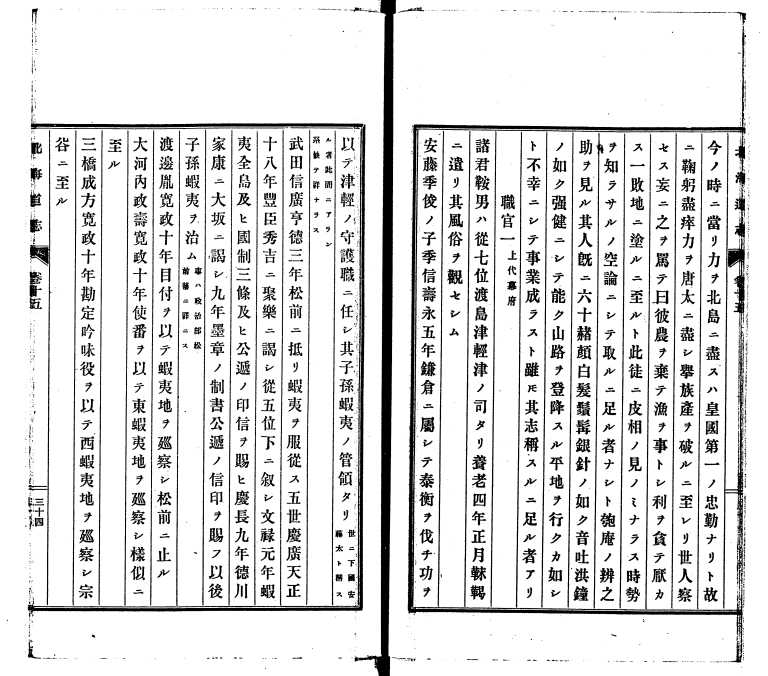 今ノ時ニ當リ力ヲ北島ニ盡スハ皇國第一ノ忠勤ナリト故
ニ鞠躬盡瘁力ヲ唐太ニ盡シ擧族產ヲ破ルニ至レリ世人察
セス妄ニ之ヲ罵テ曰彼農ヲ棄テ漁ヲ事トシ利ヲ貪テ厭カ
ス一敗地ニ塗ルニ至ルト此徒ニ皮相ノ見ノミナラス時勢
ヲ知ラサルノ空論ニシテ取ルニ足ル者ナシト匏庵ノ辨之
助ヲ見ル其人旣ニ六十赭顏白髮鬚髯銀針ノ如ク音吐洪鐘
ノ如ク强健ニシテ能ク山路ヲ登降スル平地ヲ行クカ如シ
ト不幸ニシテ事業成ラスト雖モ其志稱スルニ足ル者アリ
職官一 上代幕府
諸君鞍男ハ從七位渡島津輕津ノ司タリ養老四年正月靺鞨
ニ遣リ其風俗ヲ觀セシム
安藤季俊ノ子季信壽永五年鎌倉ニ屬シテ泰衡ヲ伐チ功ヲ
以テ津輕ノ守護職ニ任シ其子孫蝦夷ノ管領タリ 世ニ下國安藤太ト稱ス
ル者此間ニアラン系統テ詳ナラス
武田信廣亨德三年松前ニ抵リ蝦夷ヲ服從ス五世慶廣天正
十八年豐臣秀吉ニ聚樂ニ謁シ從五位下ニ叙シ文祿元年蝦
夷全島及ヒ國制三條及ヒ公遞ノ印信ヲ賜ヒ慶長九年德川
家康ニ大坂ニ謁シ九年墨章ノ制書公遞ノ信印ヲ賜フ以後
子孫蝦夷ヲ治ム 事ハ政治部松前藩ニ詳ニス
渡邊胤寬政十年目付ヲ以テ蝦夷地ヲ廵察シ松前ニ止ル
大河內政壽寬政十年使番ヲ以テ東蝦夷地ヲ廵察シ樣似ニ
至ル
三橋成方寬政十年勘定吟味役ヲ以テ西蝦夷地ヲ廵察シ宗
谷ニ至ル
北海道志
卷十五
三十四